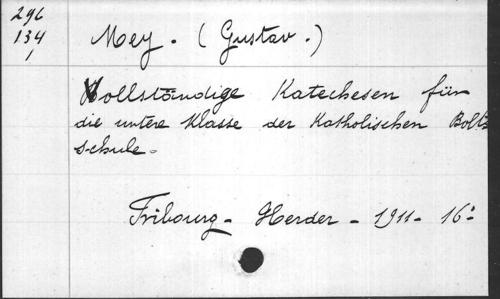 296
134
1
Mey. (Gustav.)
Vollständige Katechesen für
die untere Klasse der Katholischen Bolks
schule.
Fribourg - Herder - 1911 - 16°